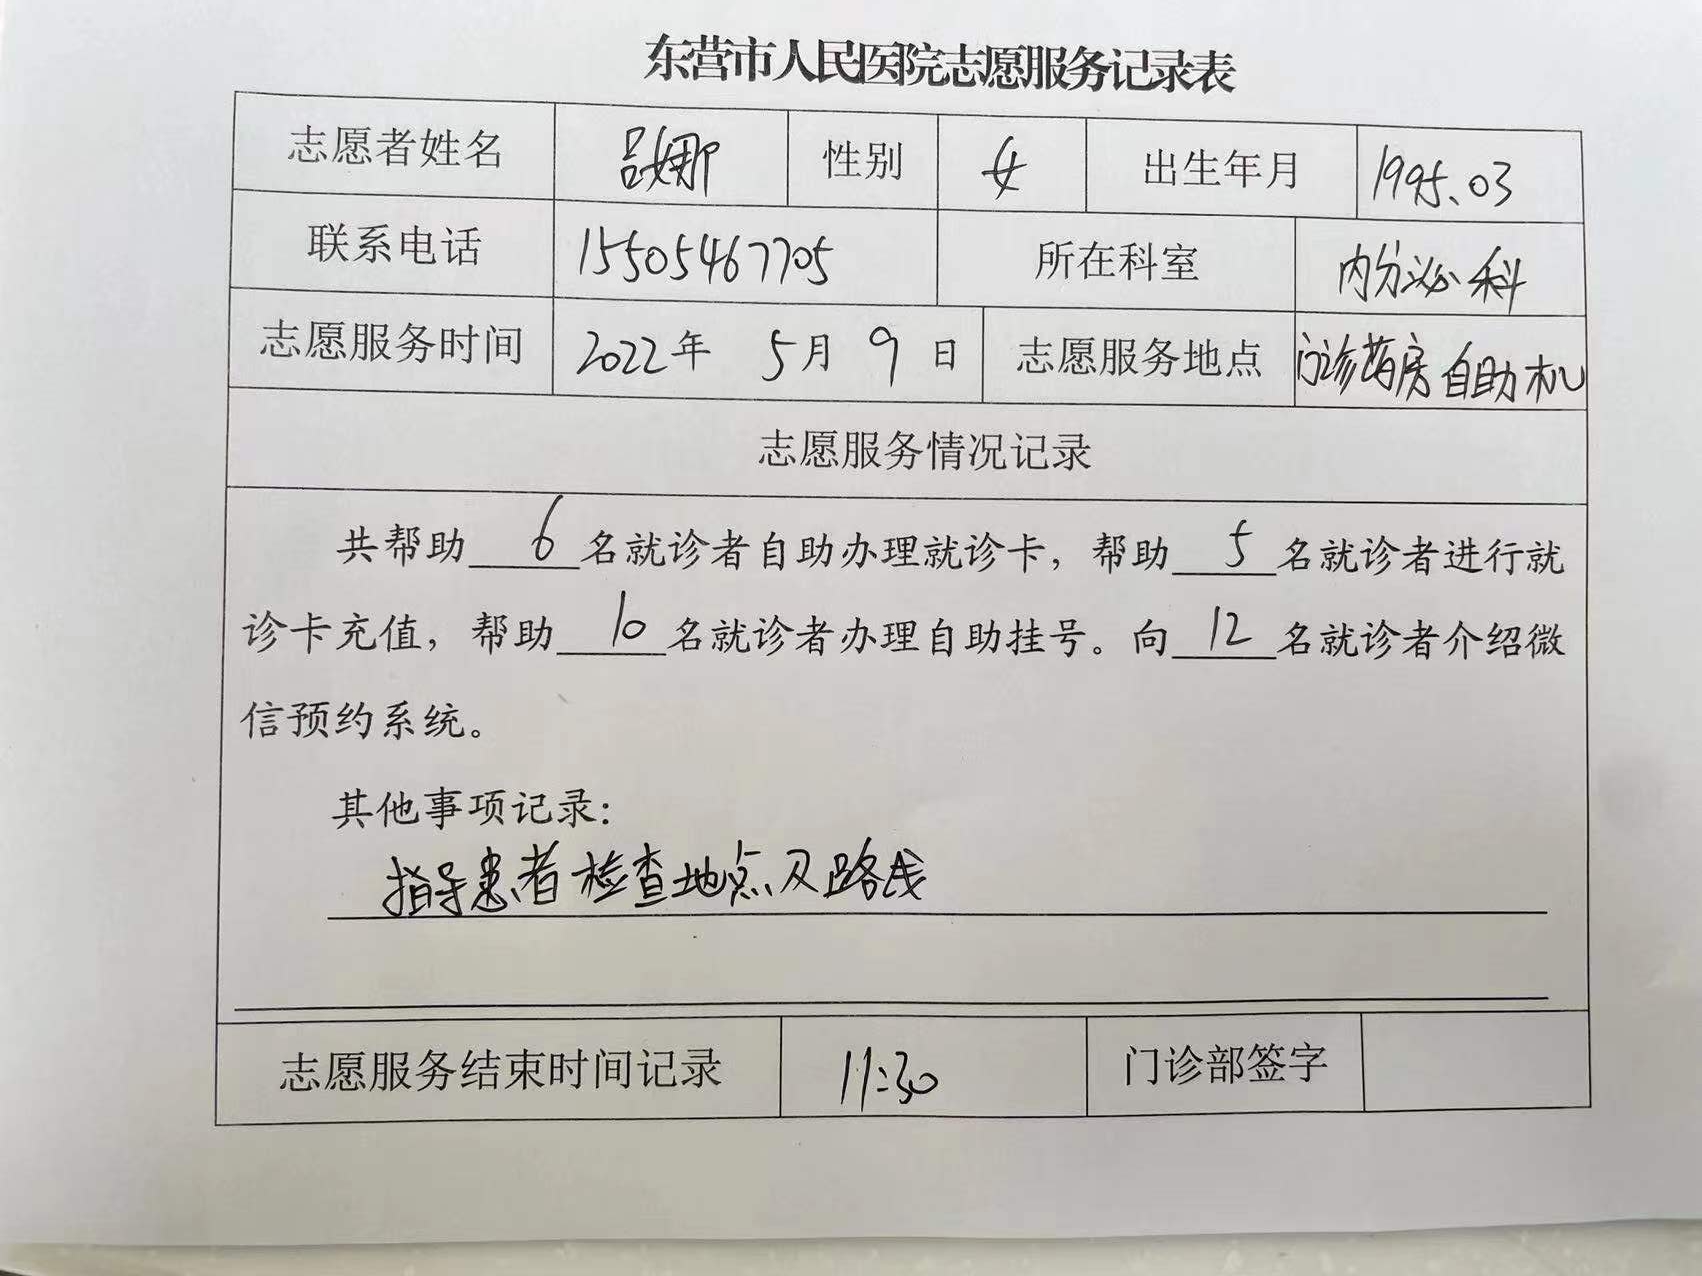 东营市人民医院志愿服务记录表
志愿者姓名 吕娜 性别 女 出生年月 1995.03
联系电话 15505467705 所在科室 内分泌科
志愿服务时间 2022年 5月 9日 志愿服务地点 门诊药房自助机
志愿服务情况记录
共帮助 6 名就诊者自助办理就诊卡，帮助 5 名就诊者进行就
诊卡充值，帮助 10 名就诊者办理自助挂号。向 12 名就诊者介绍微
信预约系统。
其他事项记录：
指导患者检查地点及路线
志愿服务结束时间记录 11:30 门诊部签字